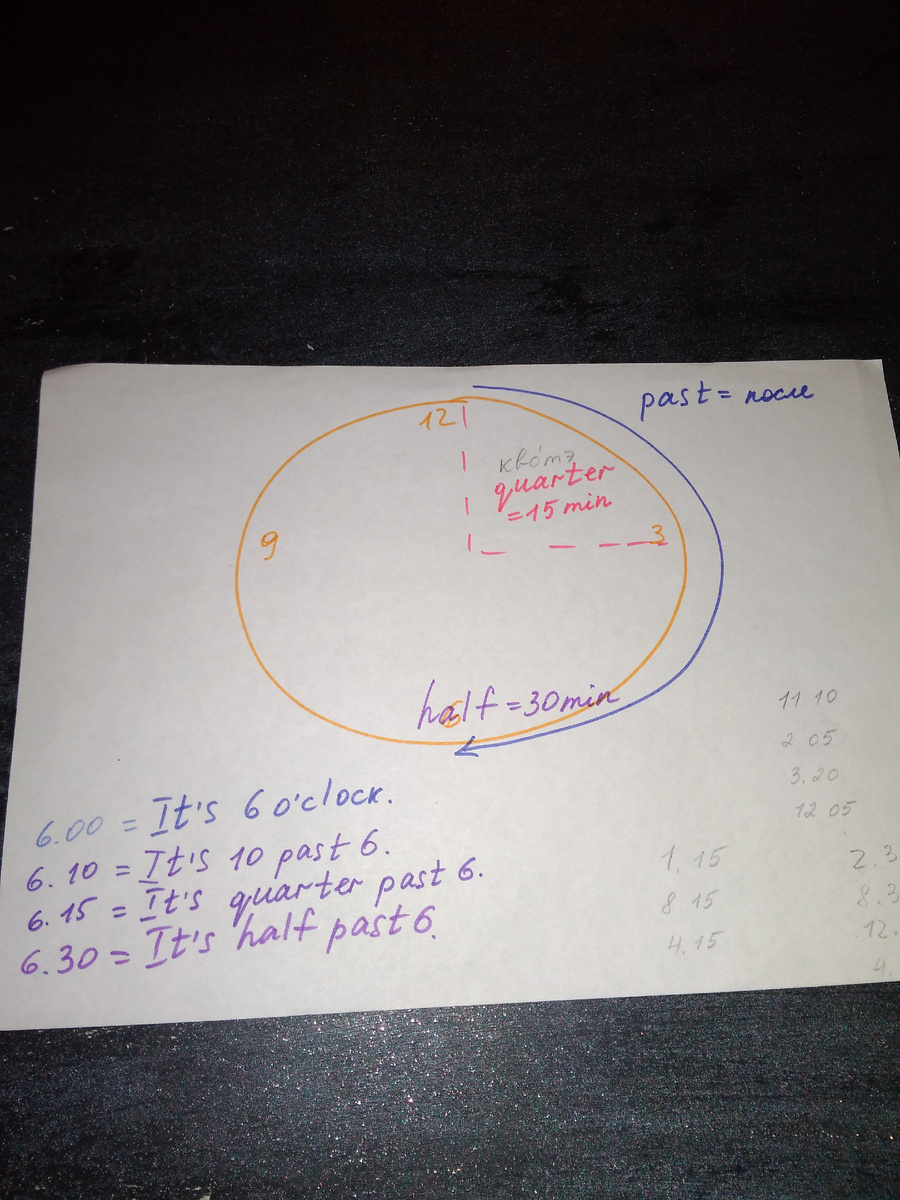 past = после
12
квóтэ
quarter
= 15 min
9
3
half = 30 min
6
11 10
2 05
3.20
12 05
6.00 = It's 6 o'clock.
6.10 = It's 10 past 6.
6.15 = It's quarter past 6.
6.30 = It's half past 6.
1.15
2.3
8 15
8.3
4.15
12.
4.